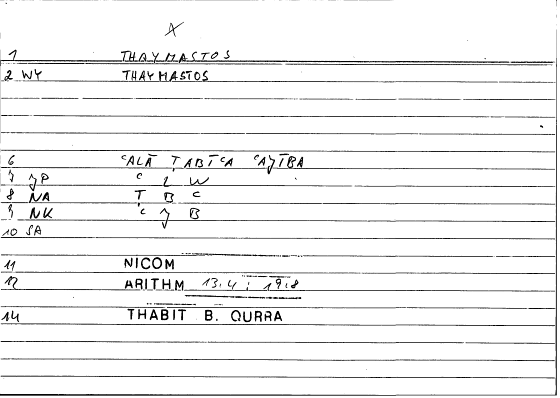 X
1 THAYMASTOS
2 WY THAYMASTOS
6 ʿALĀ ṬABĪʿA ʿAJĪBA
7 JP ʿ L W
8 NA Ṭ B ʿ
9 NK ʿ J B
10 SA
11 NICOM
12 ARITHM 13.4 : 19.8
14 THABIT B. QURRA